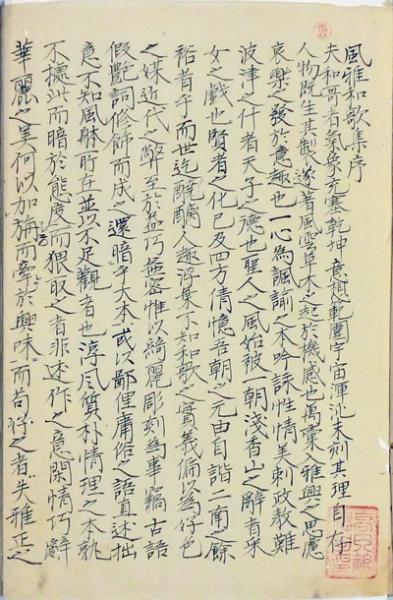 風雅和歌集序
夫和哥者氣象充塞乾坤意想範圍宇宙渾沌未剖其理自存
人物既生其製遂著風雲草木之起於機感也萬彙入雅興之思慮
哀樂之發於意趣也一心為諷諭之本吟詠性情美刺政教難
波津之什者天子之德也聖人之風始被一朝淺香山之辭者采
女之戯也賢者之化已及四方倩憶吾朝之元由自諧二南之餘
裕者乎而世迄澆醨人趨浮華不知和歌之實義偏以為好色
之媒近代之弊至於益巧益密惟以綺麗彫刻為事竊古語
假艶詞修飾而成之還暗乎大本或以鄙俚庸俗之語直述拙
意不知風躰所在並以不足觀者也淳風質朴情理之本孰
不據此而暗於態度而猥取之者非述作之意閑情巧辭
華麗之美何以加旃而牽於興味而苟好之者失雅正之